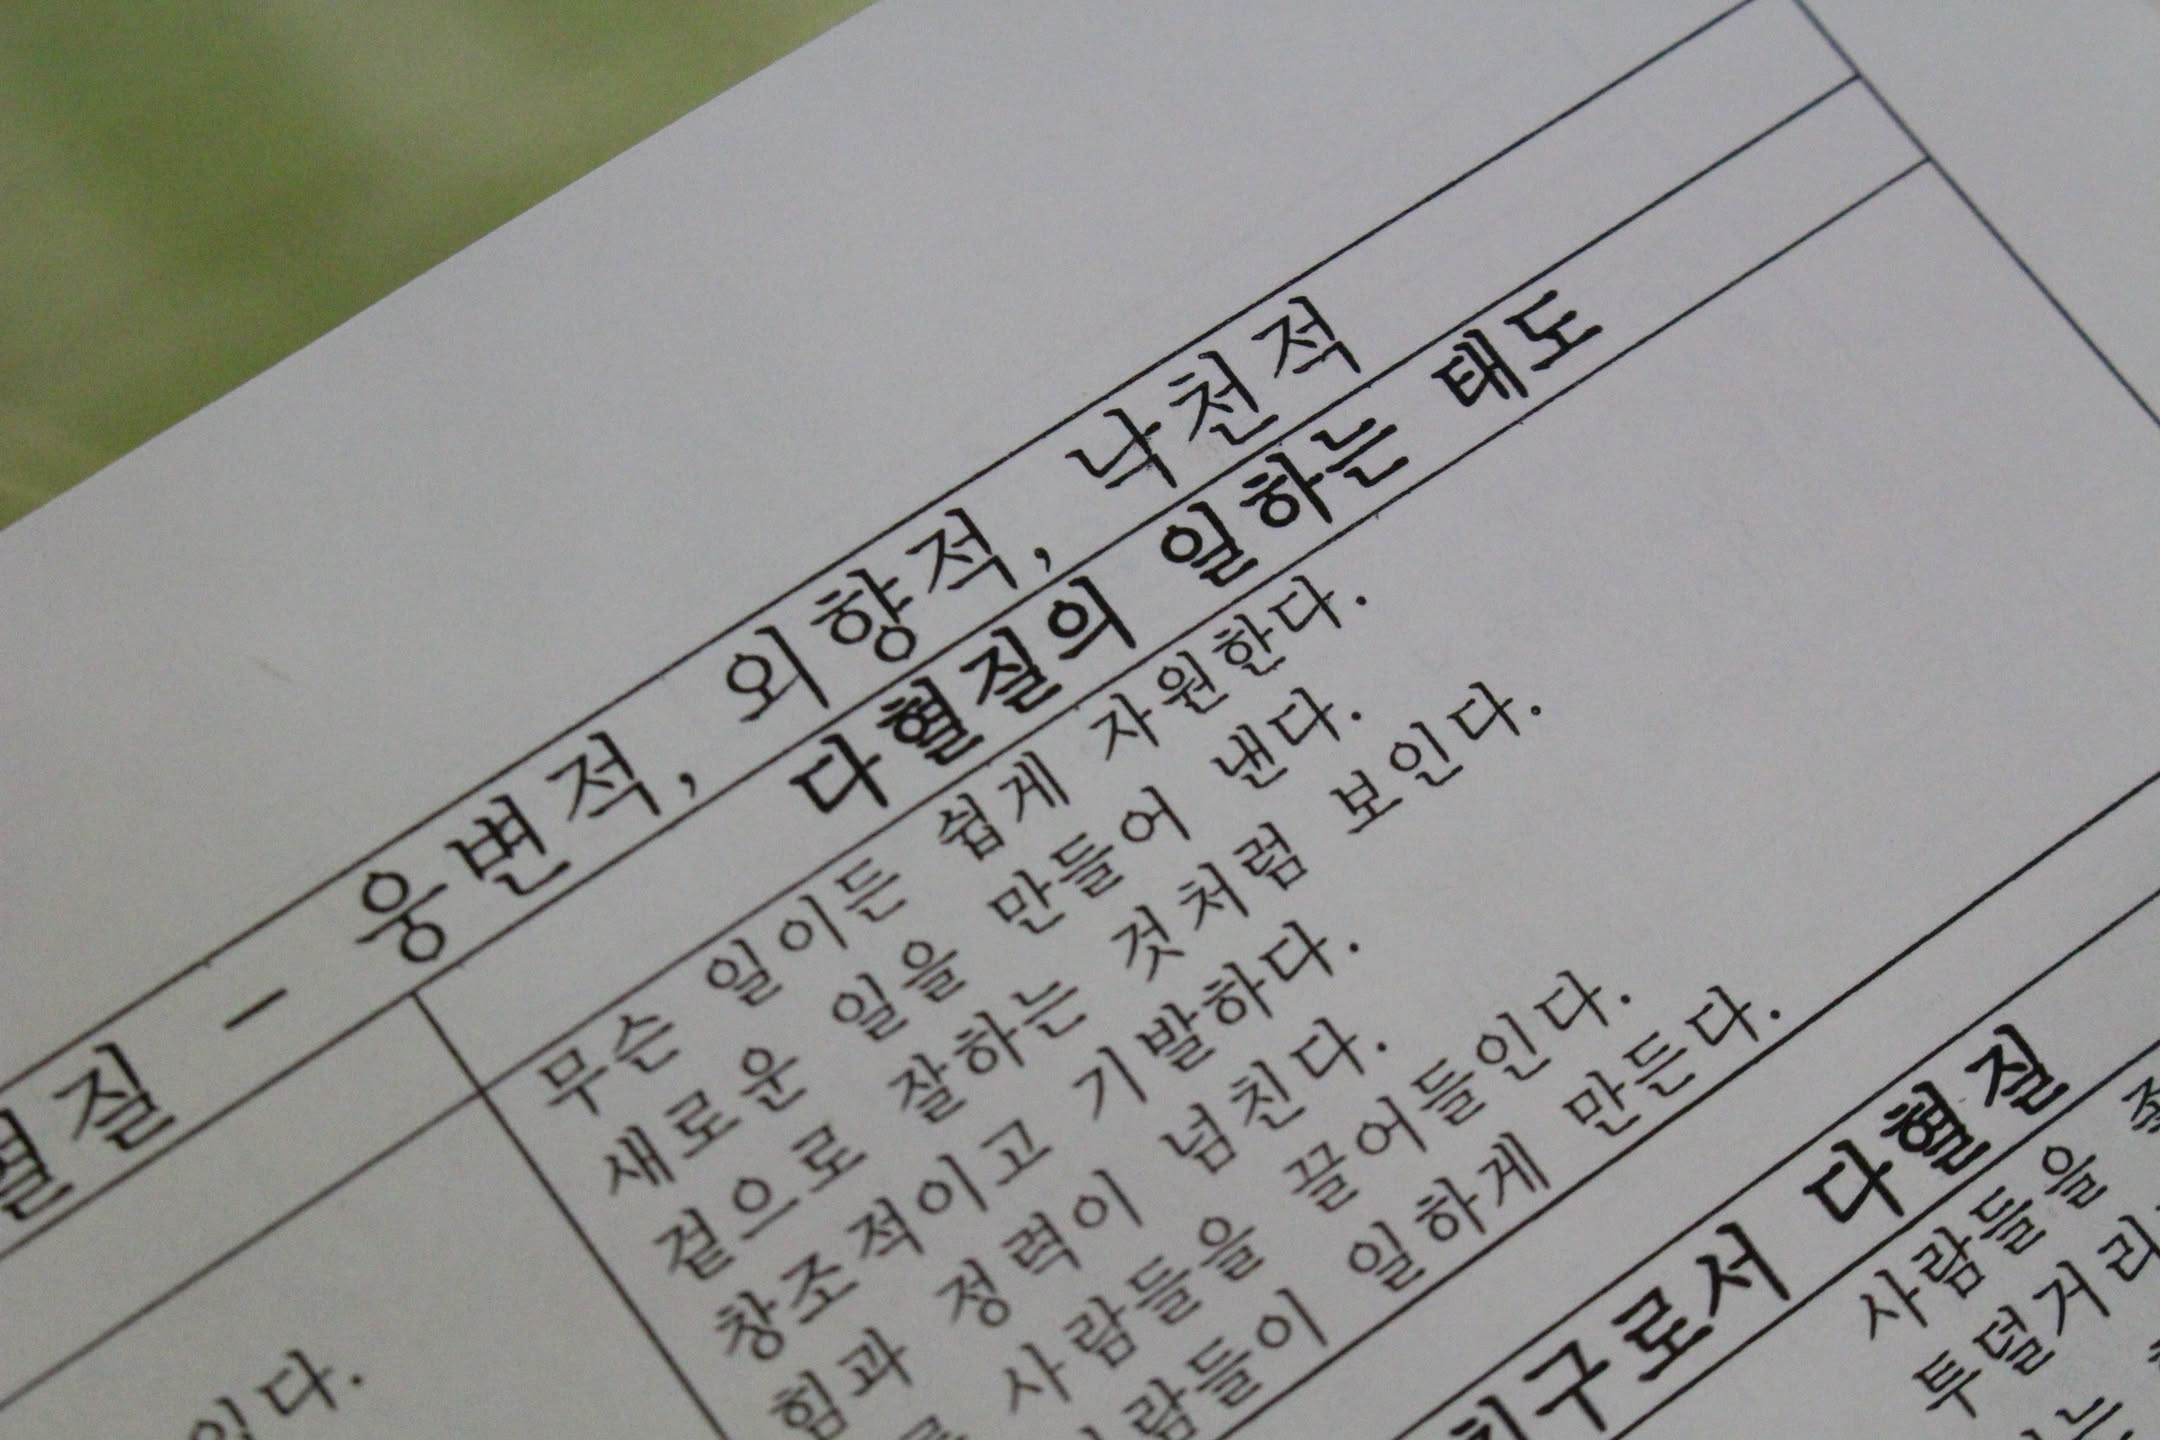 혈질 - 웅변적, 외향적, 낙천적
다혈질의 일하는 태도
무슨 일이든 쉽게 자원한다.
새로운 일을 만들어 낸다.
겉으로 잘하는 것처럼 보인다.
창조적이고 기발하다.
힘과 정력이 넘친다.
사람들을 끌어들인다.
사람들이 일하게 만든다.
있다.
친구로서 다혈질
사람들을
투덜거리